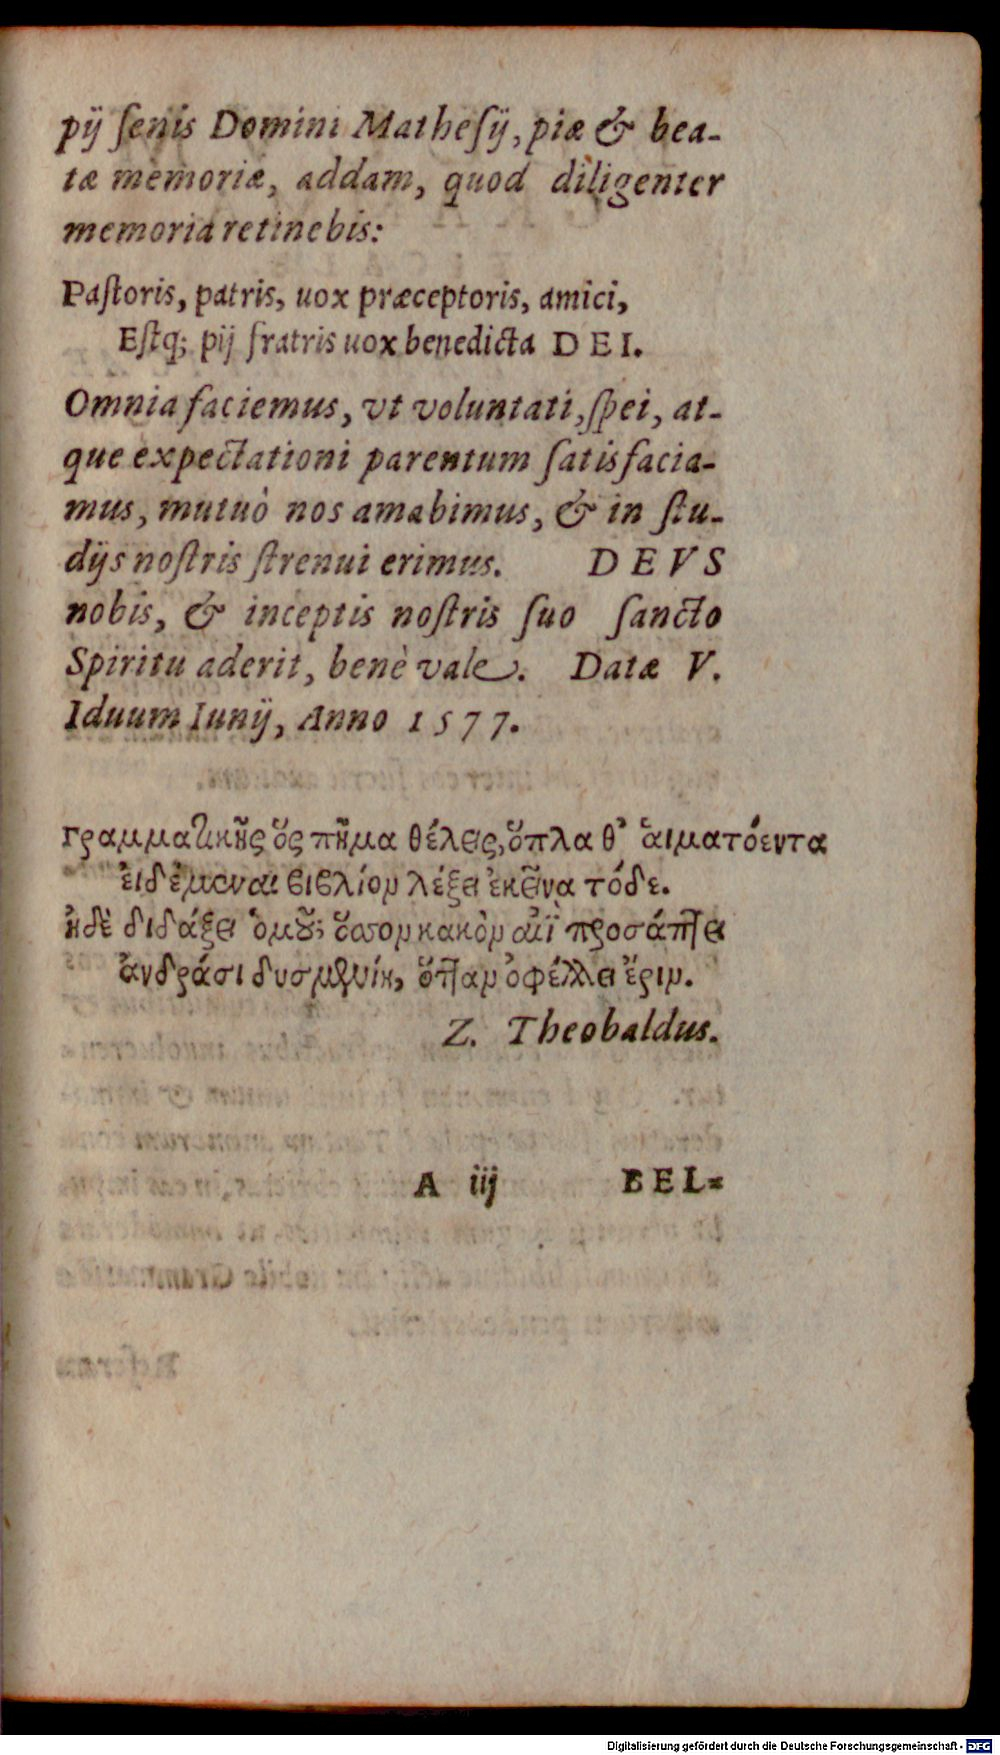 pij ſenis Domini Matheſij, piæ & bea-
tæ memoriæ, addam, quod diligenter
memoria retinebis:
Paſtoris, patris, uox præceptoris, amici,
Eſtq; pij fratris uox benedicta DEI.
Omnia faciemus, vt voluntati, ſpei, at-
que expectationi parentum ſatisfacia-
mus, mutuò nos amabimus, & in ſtu-
dijs noſtris ſtrenui erimus. DEVS
nobis, & inceptis noſtris ſuo ſancto
Spiritu aderit, benè vale. Datæ V.
Iduum Iunij, Anno 1577.
Γραμματικῆς ὅς πῆμα θέλεις, ὅπλα θ' αἱματόεντα
εἰδέμεναι βιβλίον λέξει ἐκεῖνα τόδε.
ἠδὲ διδάξει ὁμοῦ; ὅσσον κακὸν αἰῒ προσάπτει
ἀνδράσι δυσμενίη, ὅτταν ὀφέλλει ἔριν.
Z. Theobaldus.
A iij BEL=
Digitalisierung gefördert durch die Deutsche Forschungsgemeinschaft - DFG